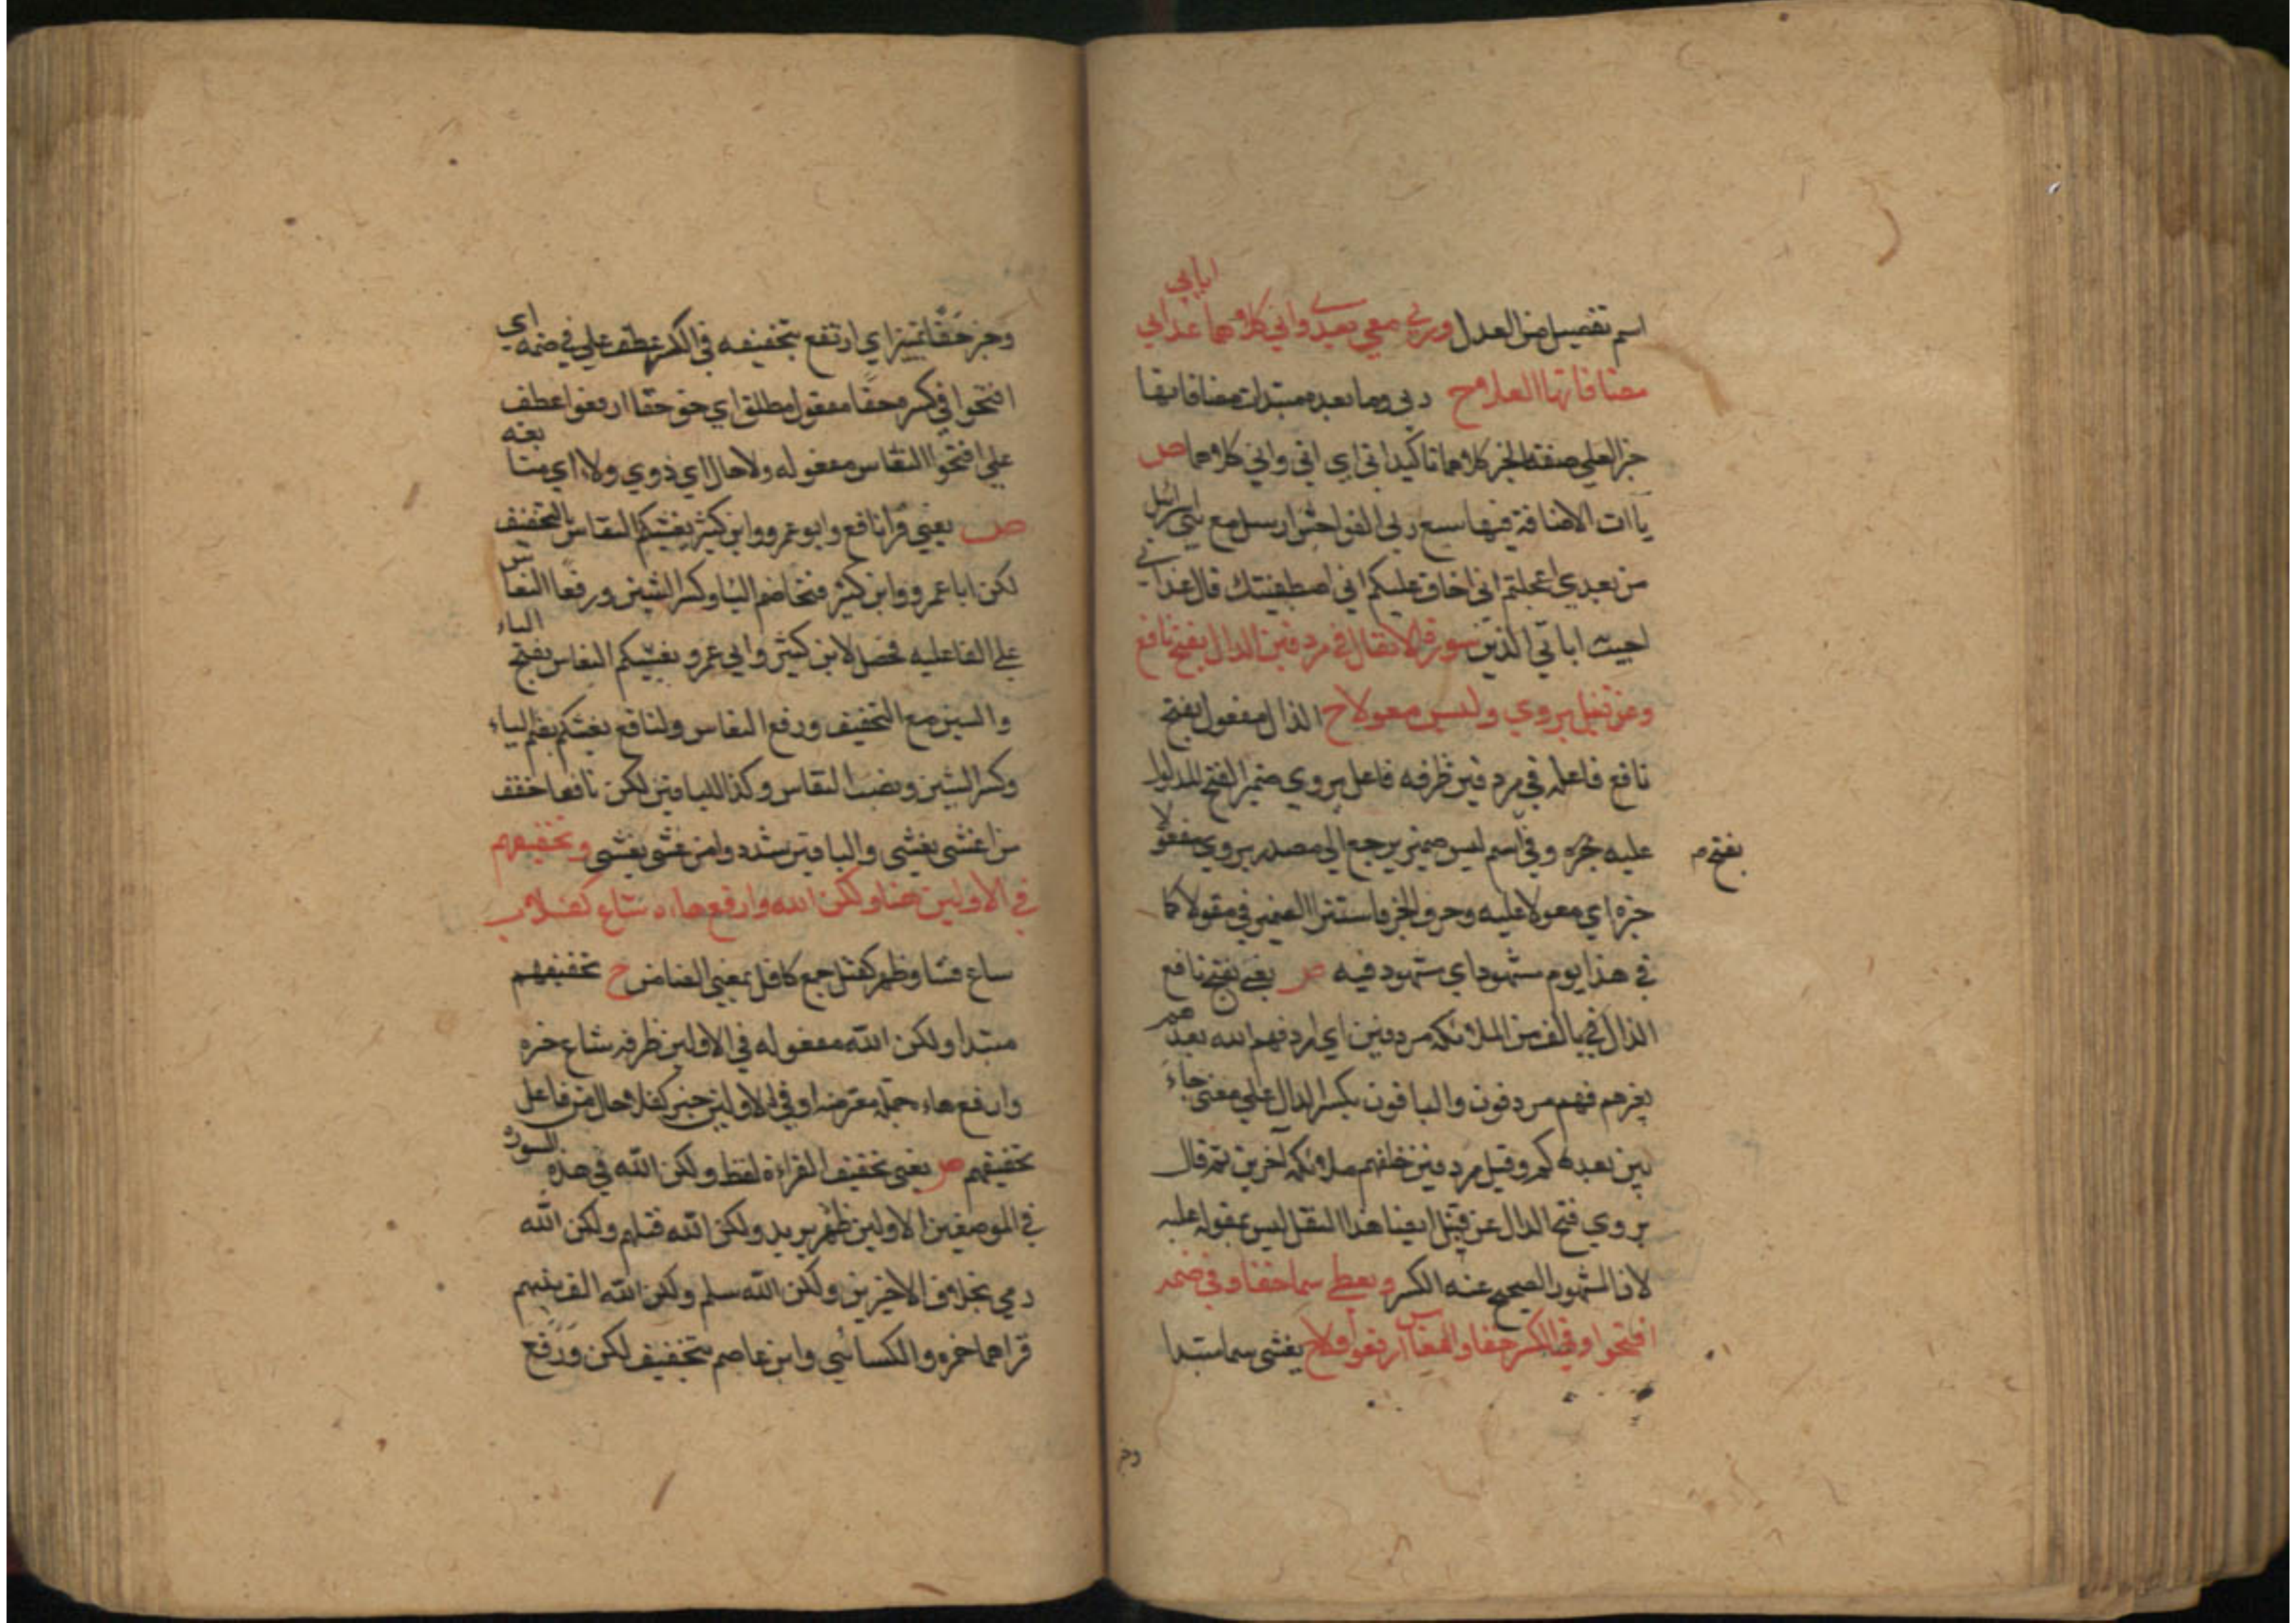 اسم تفضيل من العدل وربي معي بعدي واني كلاهما عذابي
اياتي
مضافاتها العلا ح ربي وما بعده مبتدات مضافاتها
خبر العلي صفة الخبر كلاهما تاكيد اني اي اني واني كلاهما ص
ياآت الاضافة فيها سبع ربي الفواحش ارسل مع بني اسرائل
من بعدي اعجلتم اني اخاف عليكم اني اصطفيتك قال عذابي
اصيب اياتي الذين سورة الانفال في مردفين الدال يفتح نافع
وعن قنبل يروي وليس معولا ح الدال مفعول يفتح
نافع فاعله في مردفين ظرفه فاعل يروي ضمير الفتح المدلول
عليه خبره وفي اسم ليس ضمير يرجع الي مصدر يروي معولا
بفتح م
خبره اي معولا عليه وحرف الجر فاستتر الضمير في معولا كما
في هذا يوم مشهود اي مشهود فيه ص يعني يفتح نافع
الدال في بالف من الملائكة مردفين اي اردفهم الله بعدهم
بغيرهم فهم مردفون والباقون بكسر الدال علي معنى جاء
ين بعدهم وقيل مردفين خلفهم ملائكة آخرين ثم قال
يروي فتح الدال عن قنبل ايضا هذا النقل ليس بمعول عليه
لان المشهور الصحيح عنه الكسر ويغشي سما خفا وفي ضمه
افتحوا وفي الكسر حقا والنعاس ارفعوا ولا ح يغشي سما مبتدا
وخبر
وخبر خفا تمييز اي ارتفع تخفيفه في الكسر عطف علي في ضمه اي
افتحوا في كسره حقا مفعول مطلق اي حق حقا ارفعوا عطف
علي افتحوا النعاس مفعوله ولا حال اي ذوي ولاء اي متابعه
ص يعني قرا نافع وابو عمرو وابن كثير يغشيكم النعاس بالتخفيف
لكن ابا عمرو وابن كثير فتحا ضم اليا وكسر الشين ورفعا النعاس
علي الفاعليه فحصل لابن كثير وابي عمرو يغشيكم النعاس بفتح الياء
والشين مع التخفيف ورفع النعاس ولنافع يغشيكم بضم الياء
وكسر الشين ونصب النعاس وكذا للباقين لكن نافعا خفف
من اغشي يغشي والباقين شددوا من غشي يغشي وتخفيفهم
في الاولين هنا ولكن الله وارفع هاءه شاع كفلا ب
شاع فشا وظهر كفل جمع كافل بمعني الضامن ح تخفيفهم
مبتدا ولكن الله مفعوله في الاولين ظرفه شاع خبره
وارفع هاءه جملة معترضة او في الاولين خبر كفلا حال من فاعل
تخفيفهم ص يعني تخفيف القراءة لفظ ولكن الله في هذه السورة
في الموضعين الاولين ظهر يريد ولكن الله قتلهم ولكن الله
رمي بخلاف الاخيرين ولكن الله سلم ولكن الله الف بينهم
قراهما حمزه والكسائي وابن عاصم بتخفيف لكن ورفع